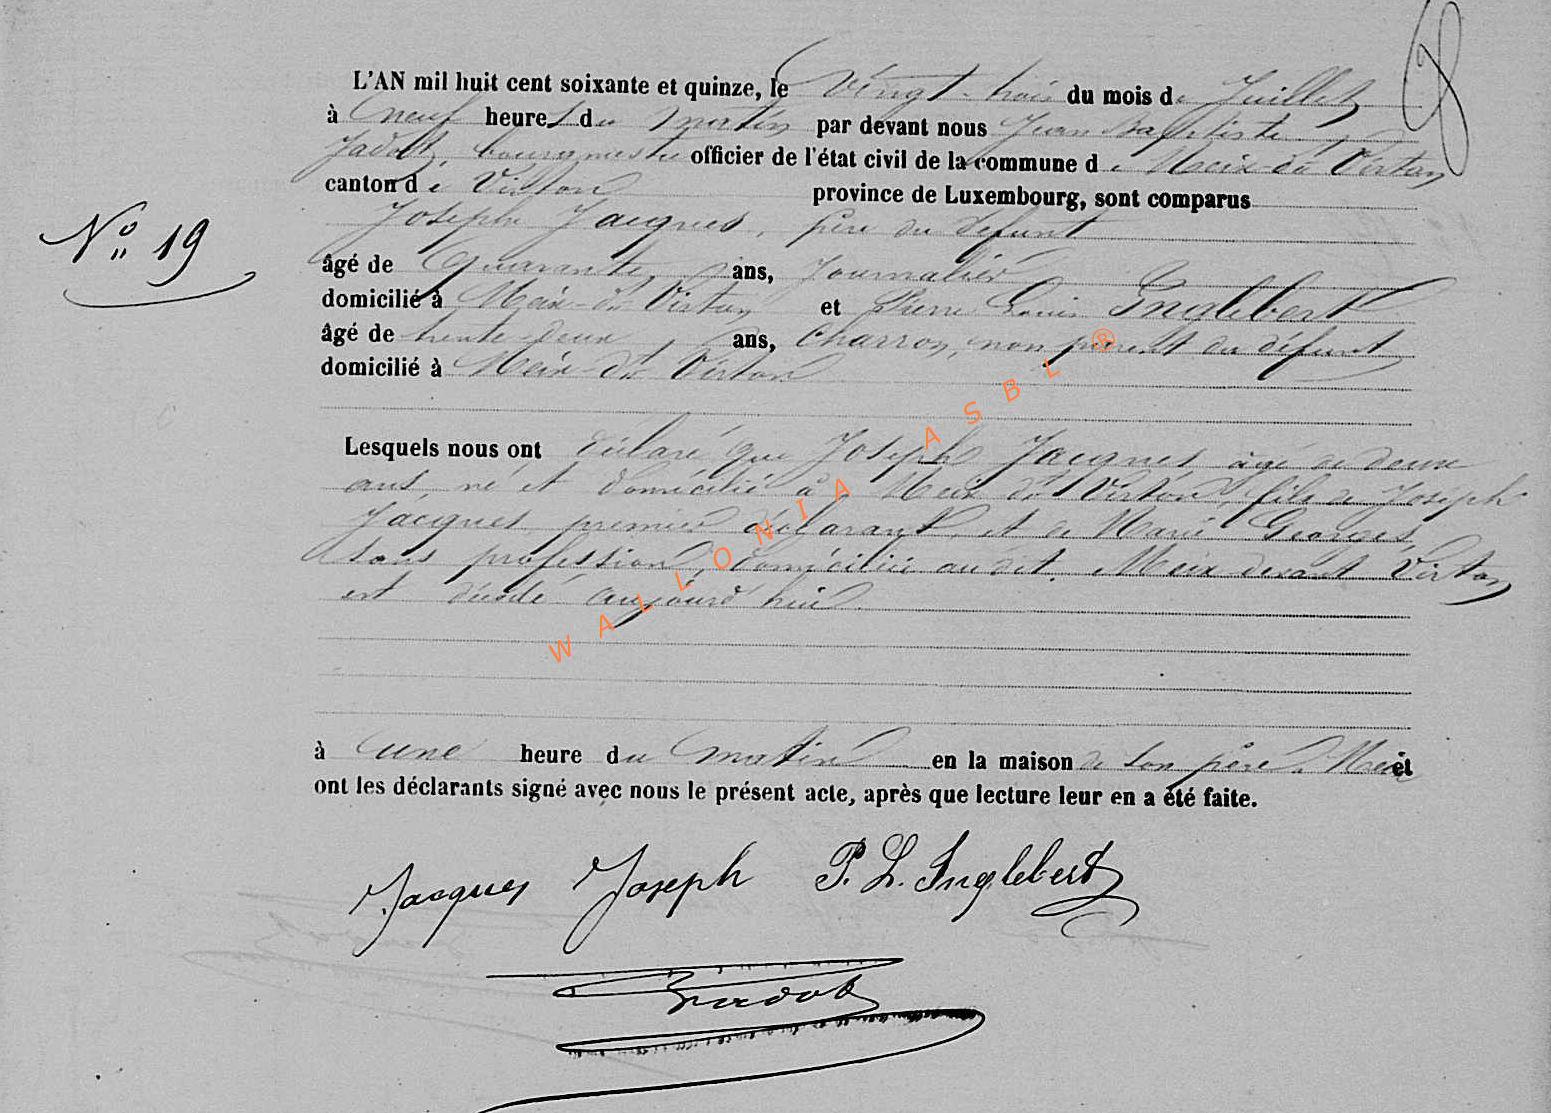 L'AN mil huit cent soixante et quinze, le vingt-trois du mois de Juillet
à neuf heures du matin par devant nous Jean Baptiste
Jadot, bourgmestre officier de l'état civil de la commune de Meix-dt Virton
canton de Virton province de Luxembourg, sont comparus
Joseph Jacques, père du défunt
N° 19
âgé de quarante ans, Journalier
domicilié à Meix-dt Virton et Pierre Louis Inglebert
âgé de trente deux ans, charron, non parent du défunt
domicilié à Meix-dt Virton
Lesquels nous ont déclaré que Joseph Jacques âgé de deux
ans, né et domicilié à Meix dt Virton, fils de Joseph
Jacques premier déclarant, et de Marie Georges,
sans profession, domiciliée audit Meix devant Virton
est décédé aujourd'hui
à une heure du matin en la maison de son père à Meix et
ont les déclarants signé avec nous le présent acte, après que lecture leur en a été faite.
Jacques Joseph P. L. Inglebert
Jadot
WALLONIA ASBL ®